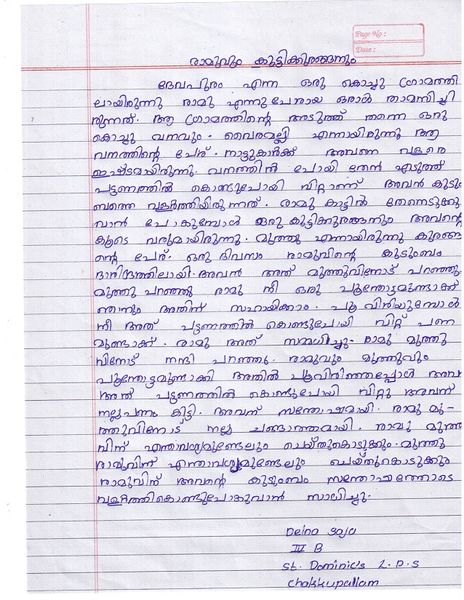 Page No :
Date :
രാമുവും കുട്ടിക്കുരങ്ങനും
ദേവപുരം എന്ന ഒരു കൊച്ചു ഗ്രാമത്തി
ലായിരുന്നു രാമു എന്നുപേരായ ഒരാൾ താമസിച്ചി
രുന്നത്. ആ ഗ്രാമത്തിന്റെ അടുത്ത് തന്നെ ഒരു
കൊച്ചു വനവും. വൈരമല്ലി എന്നായിരുന്നു ആ
വനത്തിന്റെ പേര്. നാട്ടുകാർക്ക് അവനെ വളരെ
ഇഷ്ടമായിരുന്നു. വനത്തിൽ പോയി തേൻ എടുത്ത്
പട്ടണത്തിൽ കൊണ്ടുപോയി വിറ്റാണ് അവൻ കുടും
ബത്തെ വളർത്തിയിരുന്നത്. രാമു കാട്ടിൽ തേനെടുക്കു
വാൻ പോകുമ്പോൾ ഒരു കുട്ടിക്കുരങ്ങനും അവന്റെ
കൂടെ വരുമായിരുന്നു. മുത്തു എന്നായിരുന്നു കുരങ്ങ
ന്റെ പേര്. ഒരു ദിവസം രാമുവിന്റെ കുടുംബം
ദാരിദ്രത്തിലായി. അവൻ അത് മുത്തുവിനോട് പറഞ്ഞു.
മുത്തു പറഞ്ഞു രാമു നീ ഒരു പൂന്തോട്ടമുണ്ടാക്ക്
ഞാനും അതിന് സഹായിക്കാം. പൂ വിരിയുമ്പോൾ
നീ അത് പട്ടണത്തിൽ കൊണ്ടുപോയി വിറ്റ് പണ
മുണ്ടാക്ക്. രാമു അത് സമ്മതിച്ചു. രാമു മുത്തു
വിനോട് നന്ദി പറഞ്ഞു. രാമുവും മുത്തുവും
പൂന്തോട്ടമുണ്ടാക്കി അതിൽ പൂവിരിഞ്ഞപ്പോൾ അവ
അത് പട്ടണത്തിൽ കൊണ്ടുപോയി വിറ്റു അവന്
നല്ലപണം കിട്ടി. അവന് സന്തോഷമായി. രാമു മു-
ത്തുവിനോട് നല്ല ചങ്ങാത്തമായി. രാമു മുത്തു
വിന് എന്താവശ്യമുണ്ടേലും ചെയ്തുകൊടുക്കും. മുത്തു
രാമുവിന് എന്താവശ്യമുണ്ടേലും ചെയ്തുകൊടുക്കും
രാമുവിന് അവന്റെ കുടുംബം സന്തോഷത്തോടെ
വളർത്തികൊണ്ടുപോകുവാൻ സാധിച്ചു.
Deina Saju
IV B
St. Dominic's L.P.S
Chakkupallam